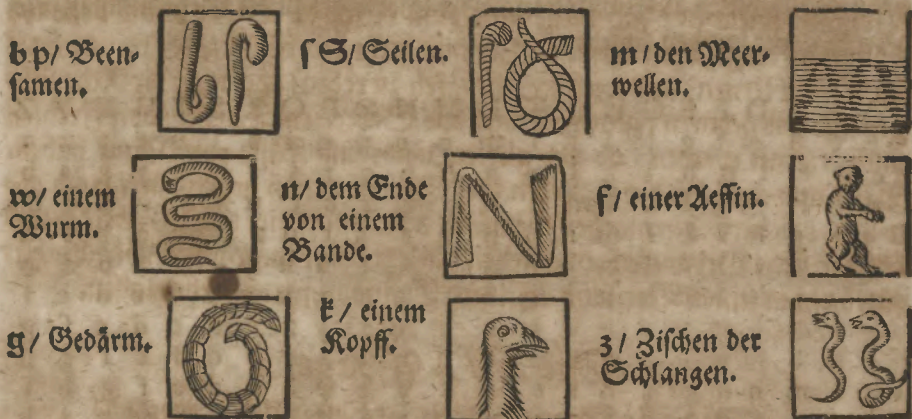 b p/ Been-
samen.
ſ S/ Seilen.
m/ den Meer-
wellen.
w/ einem
Wurm.
n/ dem Ende
von einem
Bande.
f/ einer Aeffin.
g/ Gedärm.
k/ einem
Kopff.
z/ Ziſchen der
Schlangen.